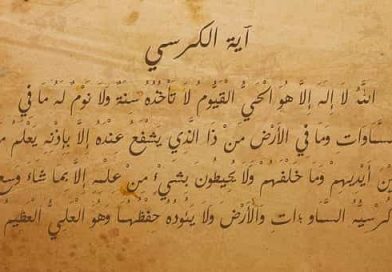 آية الكرسي
اللَّهُ لَا إِلَهَ إِلَّا هُوَ الْحَيُّ الْقَيُّومُ لَا تَأْخُذُهُ سِنَةٌ وَلَا نَوْمٌ لَهُ مَا فِي
سَّمَاوَات وَمَا فِي الْأَرْضِ مَنْ ذَا الَّذِي يَشْفَعُ عِنْدَهُ إِلَّا بِإِذْنِهِ يَعْلَمُ م
ين أَيْدِيهِمْ وَمَا خَلْفَهُمْ وَلَا يُحِيطُونَ بِشَيْءٍ مِنْ عِلْمِهِ إِلَّا بِمَا شَاءَ وَسِع
كُرْسِيُّهُ السَّمَاوَاتِ وَالْأَرْضَ وَلَا يَئُودُهُ حِفْظُهُمَا وَهُوَ الْعَلِيُّ الْعَظِيمُ